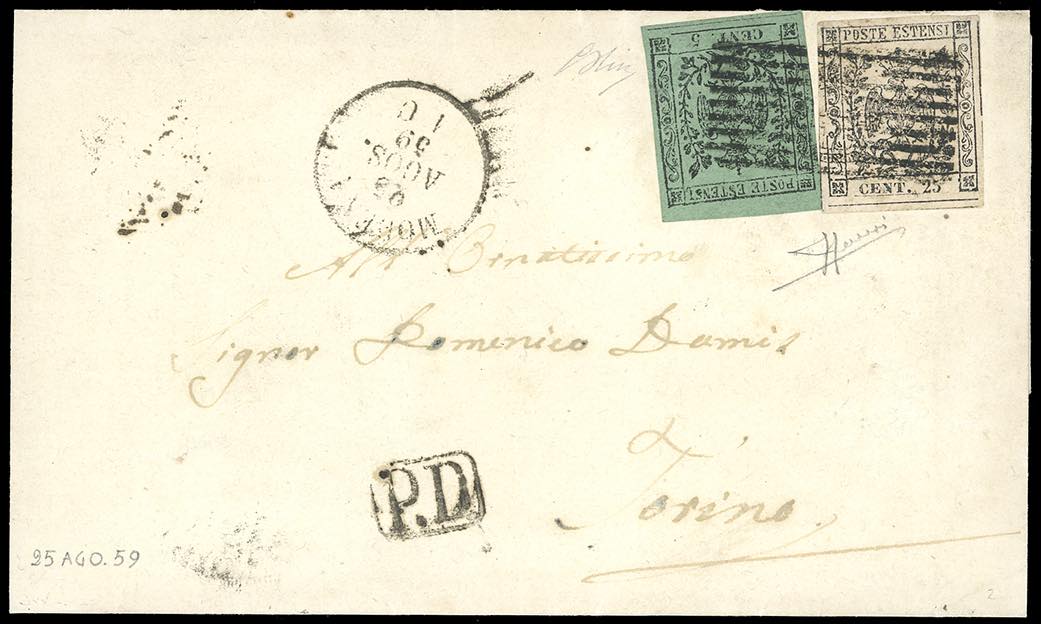 CENT. 5
POSTE ESTENSI
POSTE ESTENSI
CENT. 25
MODENA
25
AGOS
59
All' Ornatissimo
Signor Domenico Damis
Torino
P.D
25 AGO. 59
2